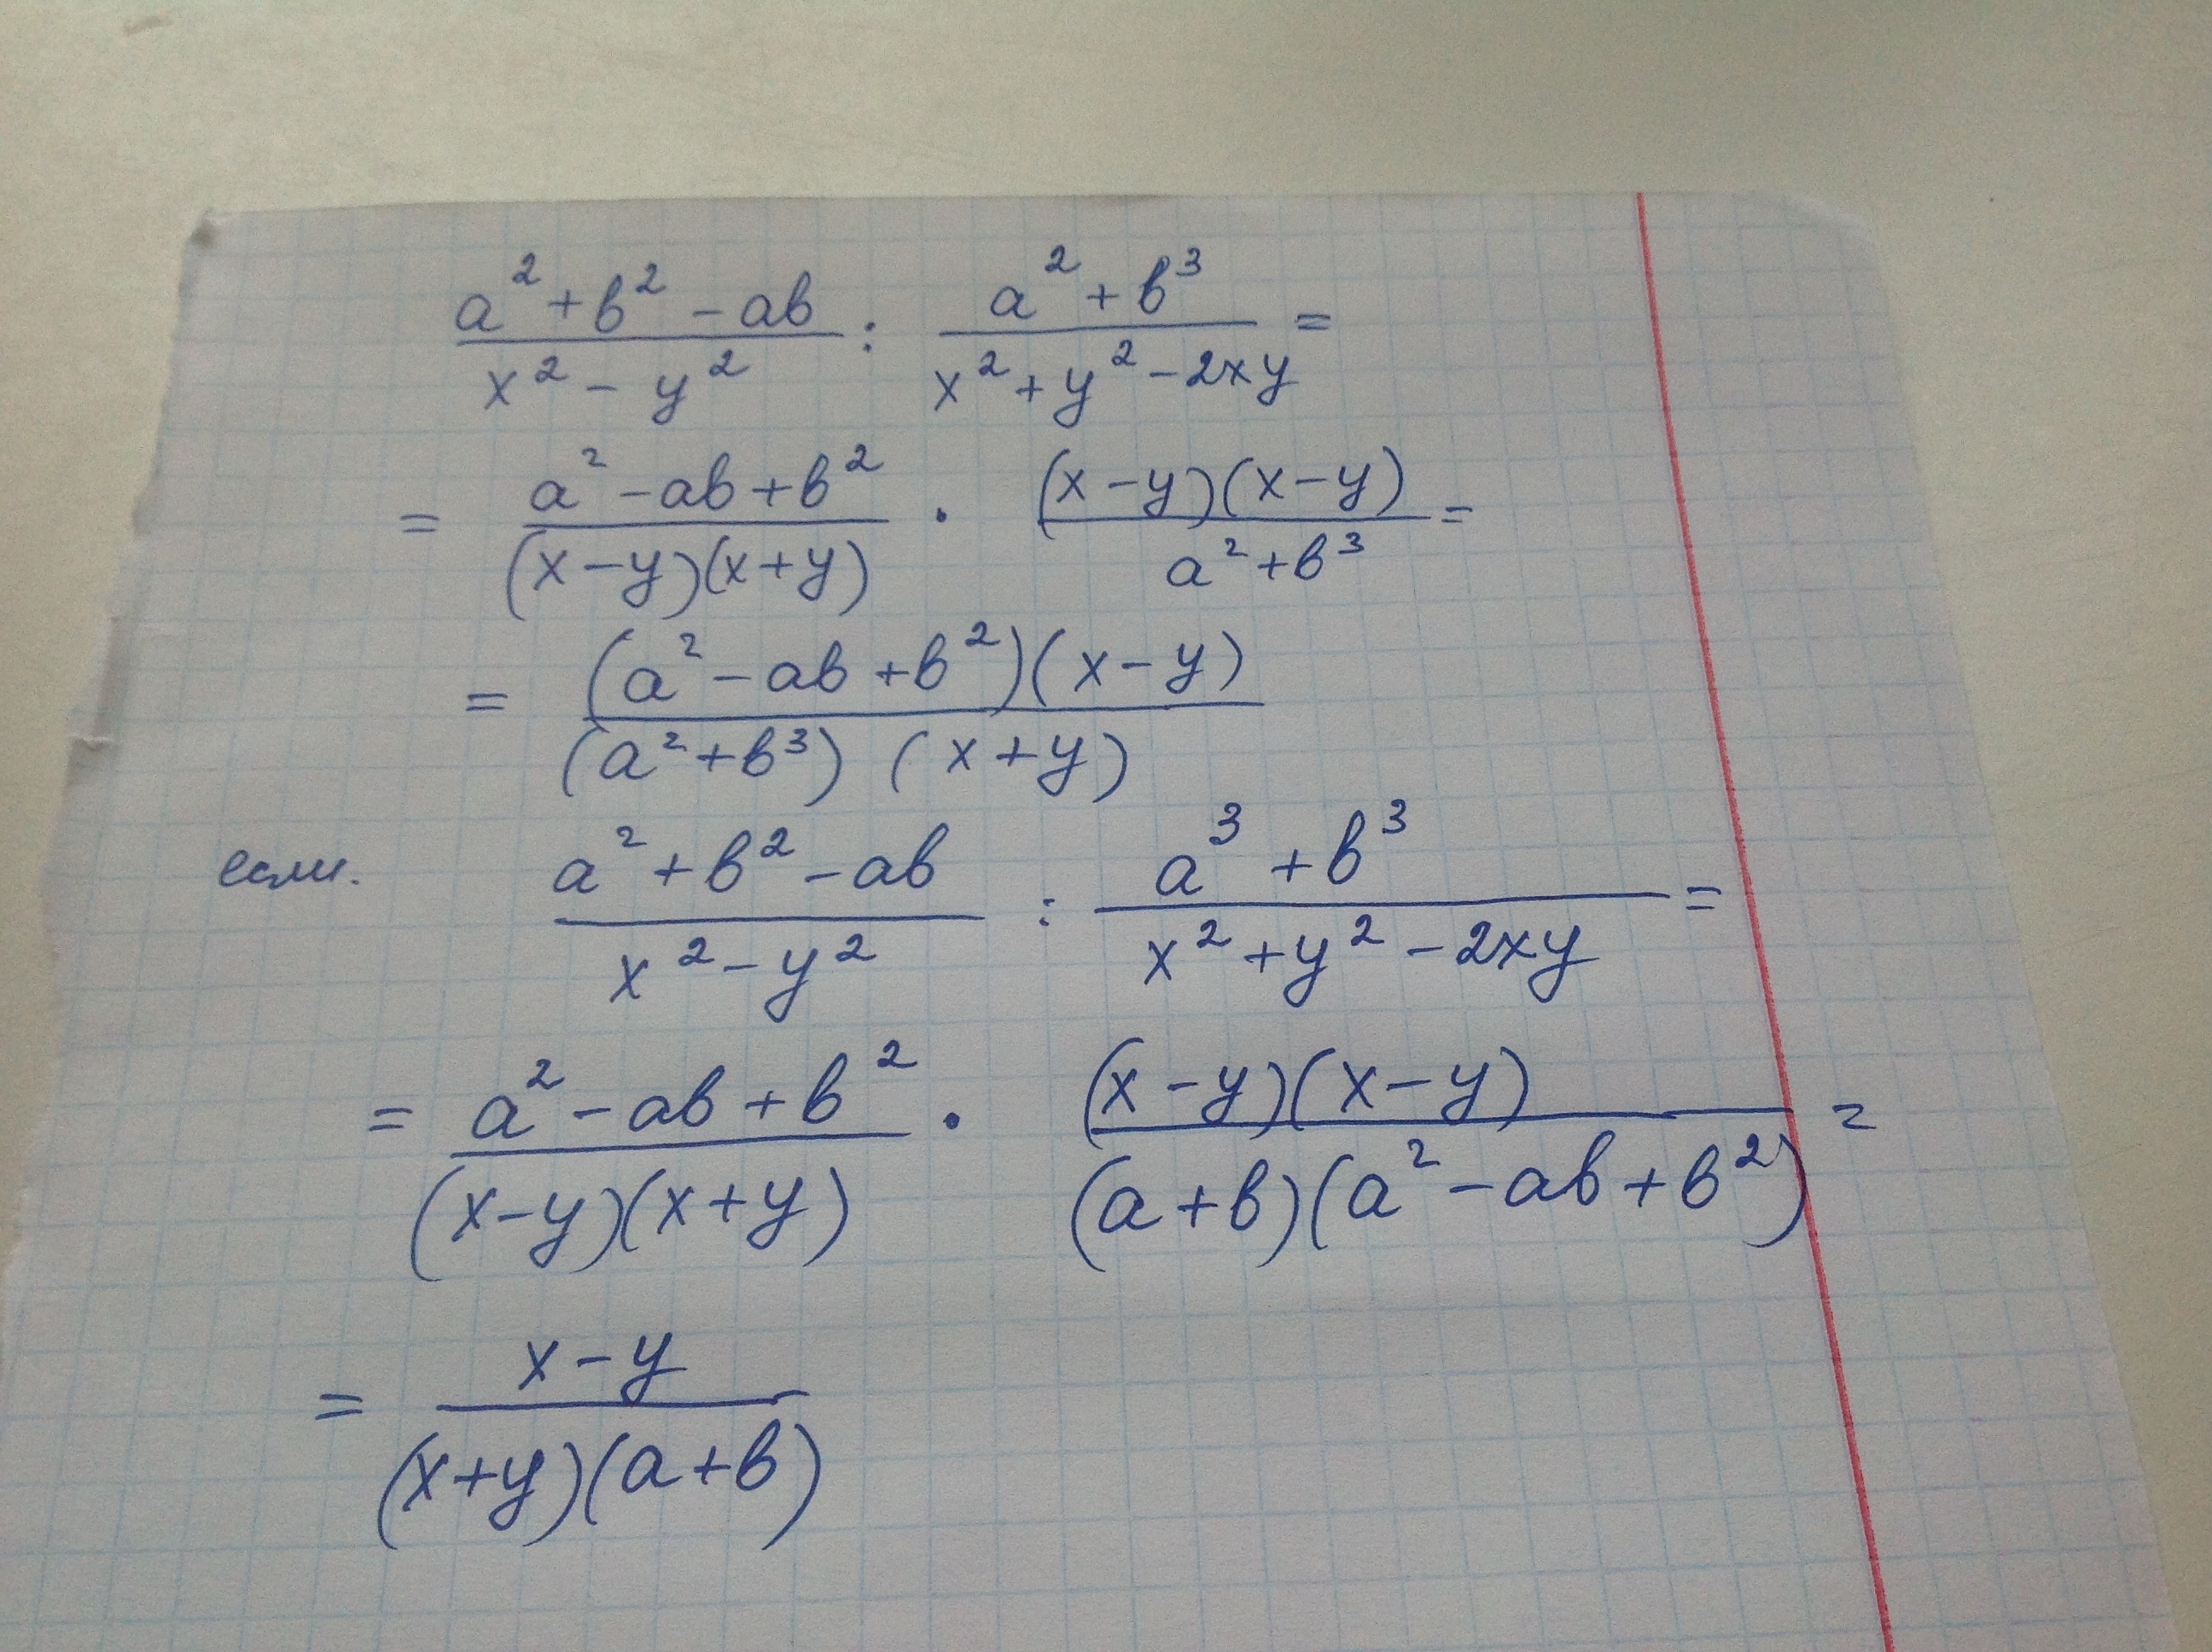 (a² + b² - ab)/(x² - y²) : (a² + b³)/(x² + y² - 2xy) =
= (a² - ab + b²)/((x - y)(x + y)) · ((x - y)(x - y))/(a² + b³) =
= ((a² - ab + b²)(x - y))/((a² + b³)(x + y))
если. (a² + b² - ab)/(x² - y²) : (a³ + b³)/(x² + y² - 2xy) =
= (a² - ab + b²)/((x - y)(x + y)) · ((x - y)(x - y))/((a + b)(a² - ab + b²)) =
= (x - y)/((x + y)(a + b))